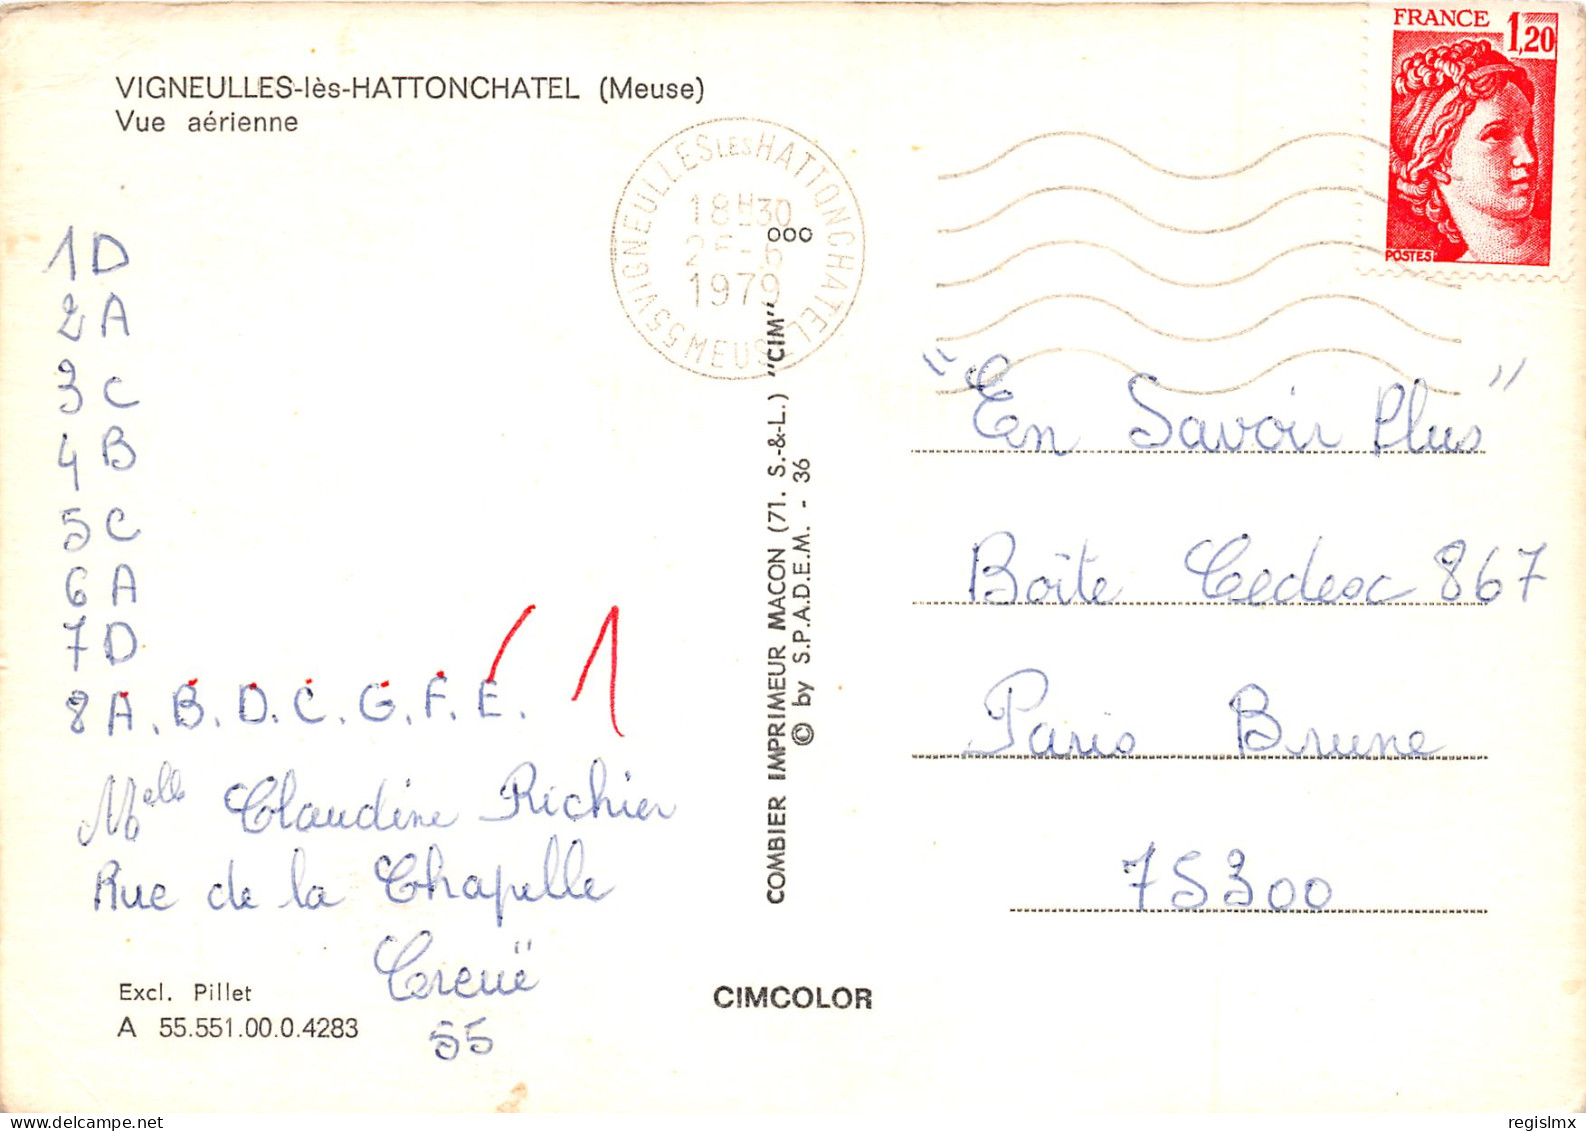 VIGNEULLES-lès-HATTONCHATEL (Meuse)
Vue aérienne
1 D
2 A
3 C
4 B
5 C
6 A
7 D
8 A. B. D. C. G. F. E.
1
Melle Claudine Richier
Rue de la Chapelle
Creuë
55
Excl. Pillet
A 55.551.00.0.4283
55 VIGNEULLES LES HATTONCHATEL
MEUSE
18H30
1979
ooo
COMBIER IMPRIMEUR MACON (71. S.-&-L.) "CIM"
© by S.P.A.D.E.M. - 36
CIMCOLOR
FRANCE
1,20
POSTES
"En Savoir Plus"
Boîte Cedex 867
Paris Brune
75300
regislmx